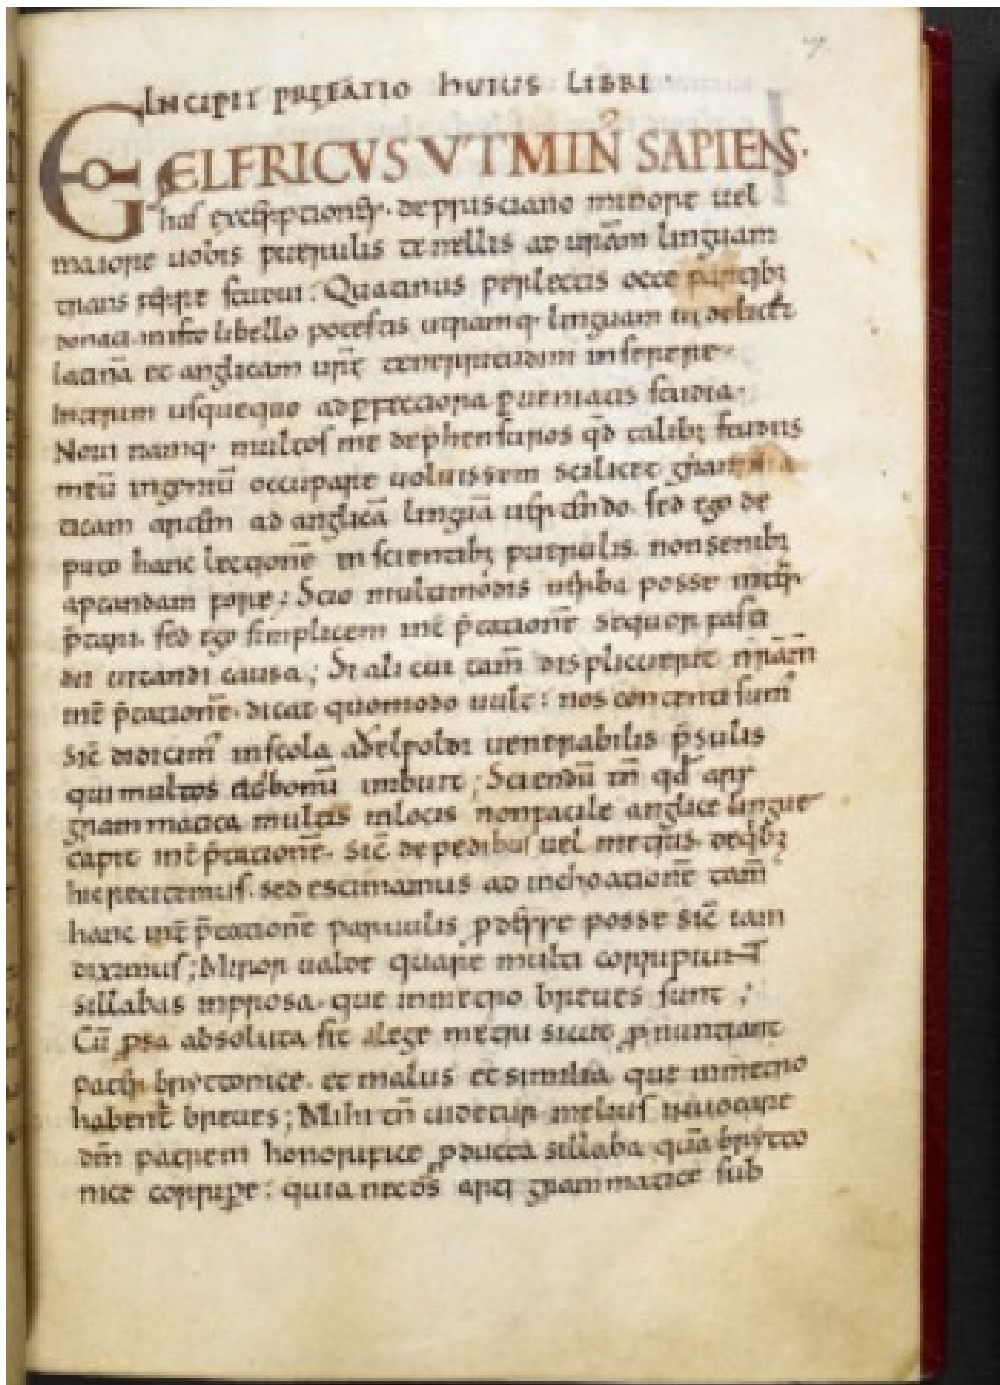 7
INCIPIT PRęFATIO hUIUS LIBRI
EGO ÆLFRICVS VT MIN̄ SAPIENS·
has excerptiones· de prisciano minore uel
maiore uobis puerulis tenellis ad ur̄am linguam
transferre studui: Quatinus perlectis octo partibꝫ
donati· in isto libello potestis utramq· linguam uidelicet
latinā et anglicam ur̄e teneritudini inserere·
Interim usquequo ad ꝑfectiora ꝑueniatis studia·
Noui namq· multos me dephensuros qđ talibꝫ studiis
meū ingeniū occupare uoluissem scilicet gramma
ticam artem ad anglicā linguā uertendo· sed ego de
puto hanc lectionē inscientibꝫ puerulis· non senibꝫ
aptandam fore; Scio multimodis uerba posse inter
p̄tari· sed ego simplicem int̄ p̄tationē sequor fasti
dii uitandi causa; Si alicui tam̄ displicuerit nr̄am
int̄ p̄tationē· dicat quomodo uult: nos contenti sum̄
sic̄ didicim̄ in scola aðelpoldi uenerabilis p̄sulis
qui multos ad bonū imbuit; Sciendū tn̄ qđ ars
grammatica multis in locis non facile anglice lingue
capit int̄ p̄tationē· sic̄ de pedibus uel metris· de qibꝫ
hic reticemus· sed estimamus ad inchoationē tam̄
hanc int̄ p̄tationē paruulis ꝓdesse posse sic̄ iam
diximus; Miror ualde quare multi corripiunt
sillabas in prosa· que in metro breues sunt;
Cū ꝓsa absoluta sit a lege metri sicut ꝓnuntiant
pater bryttonice· et malus et similia que in metro
habent breues; Mihi tn̄ uidetur melius inuocare
dm̄ patrem honorifice ꝓducta sillaba quā brytto
nice corripere: quia nec ds̄ arti grammatice sub